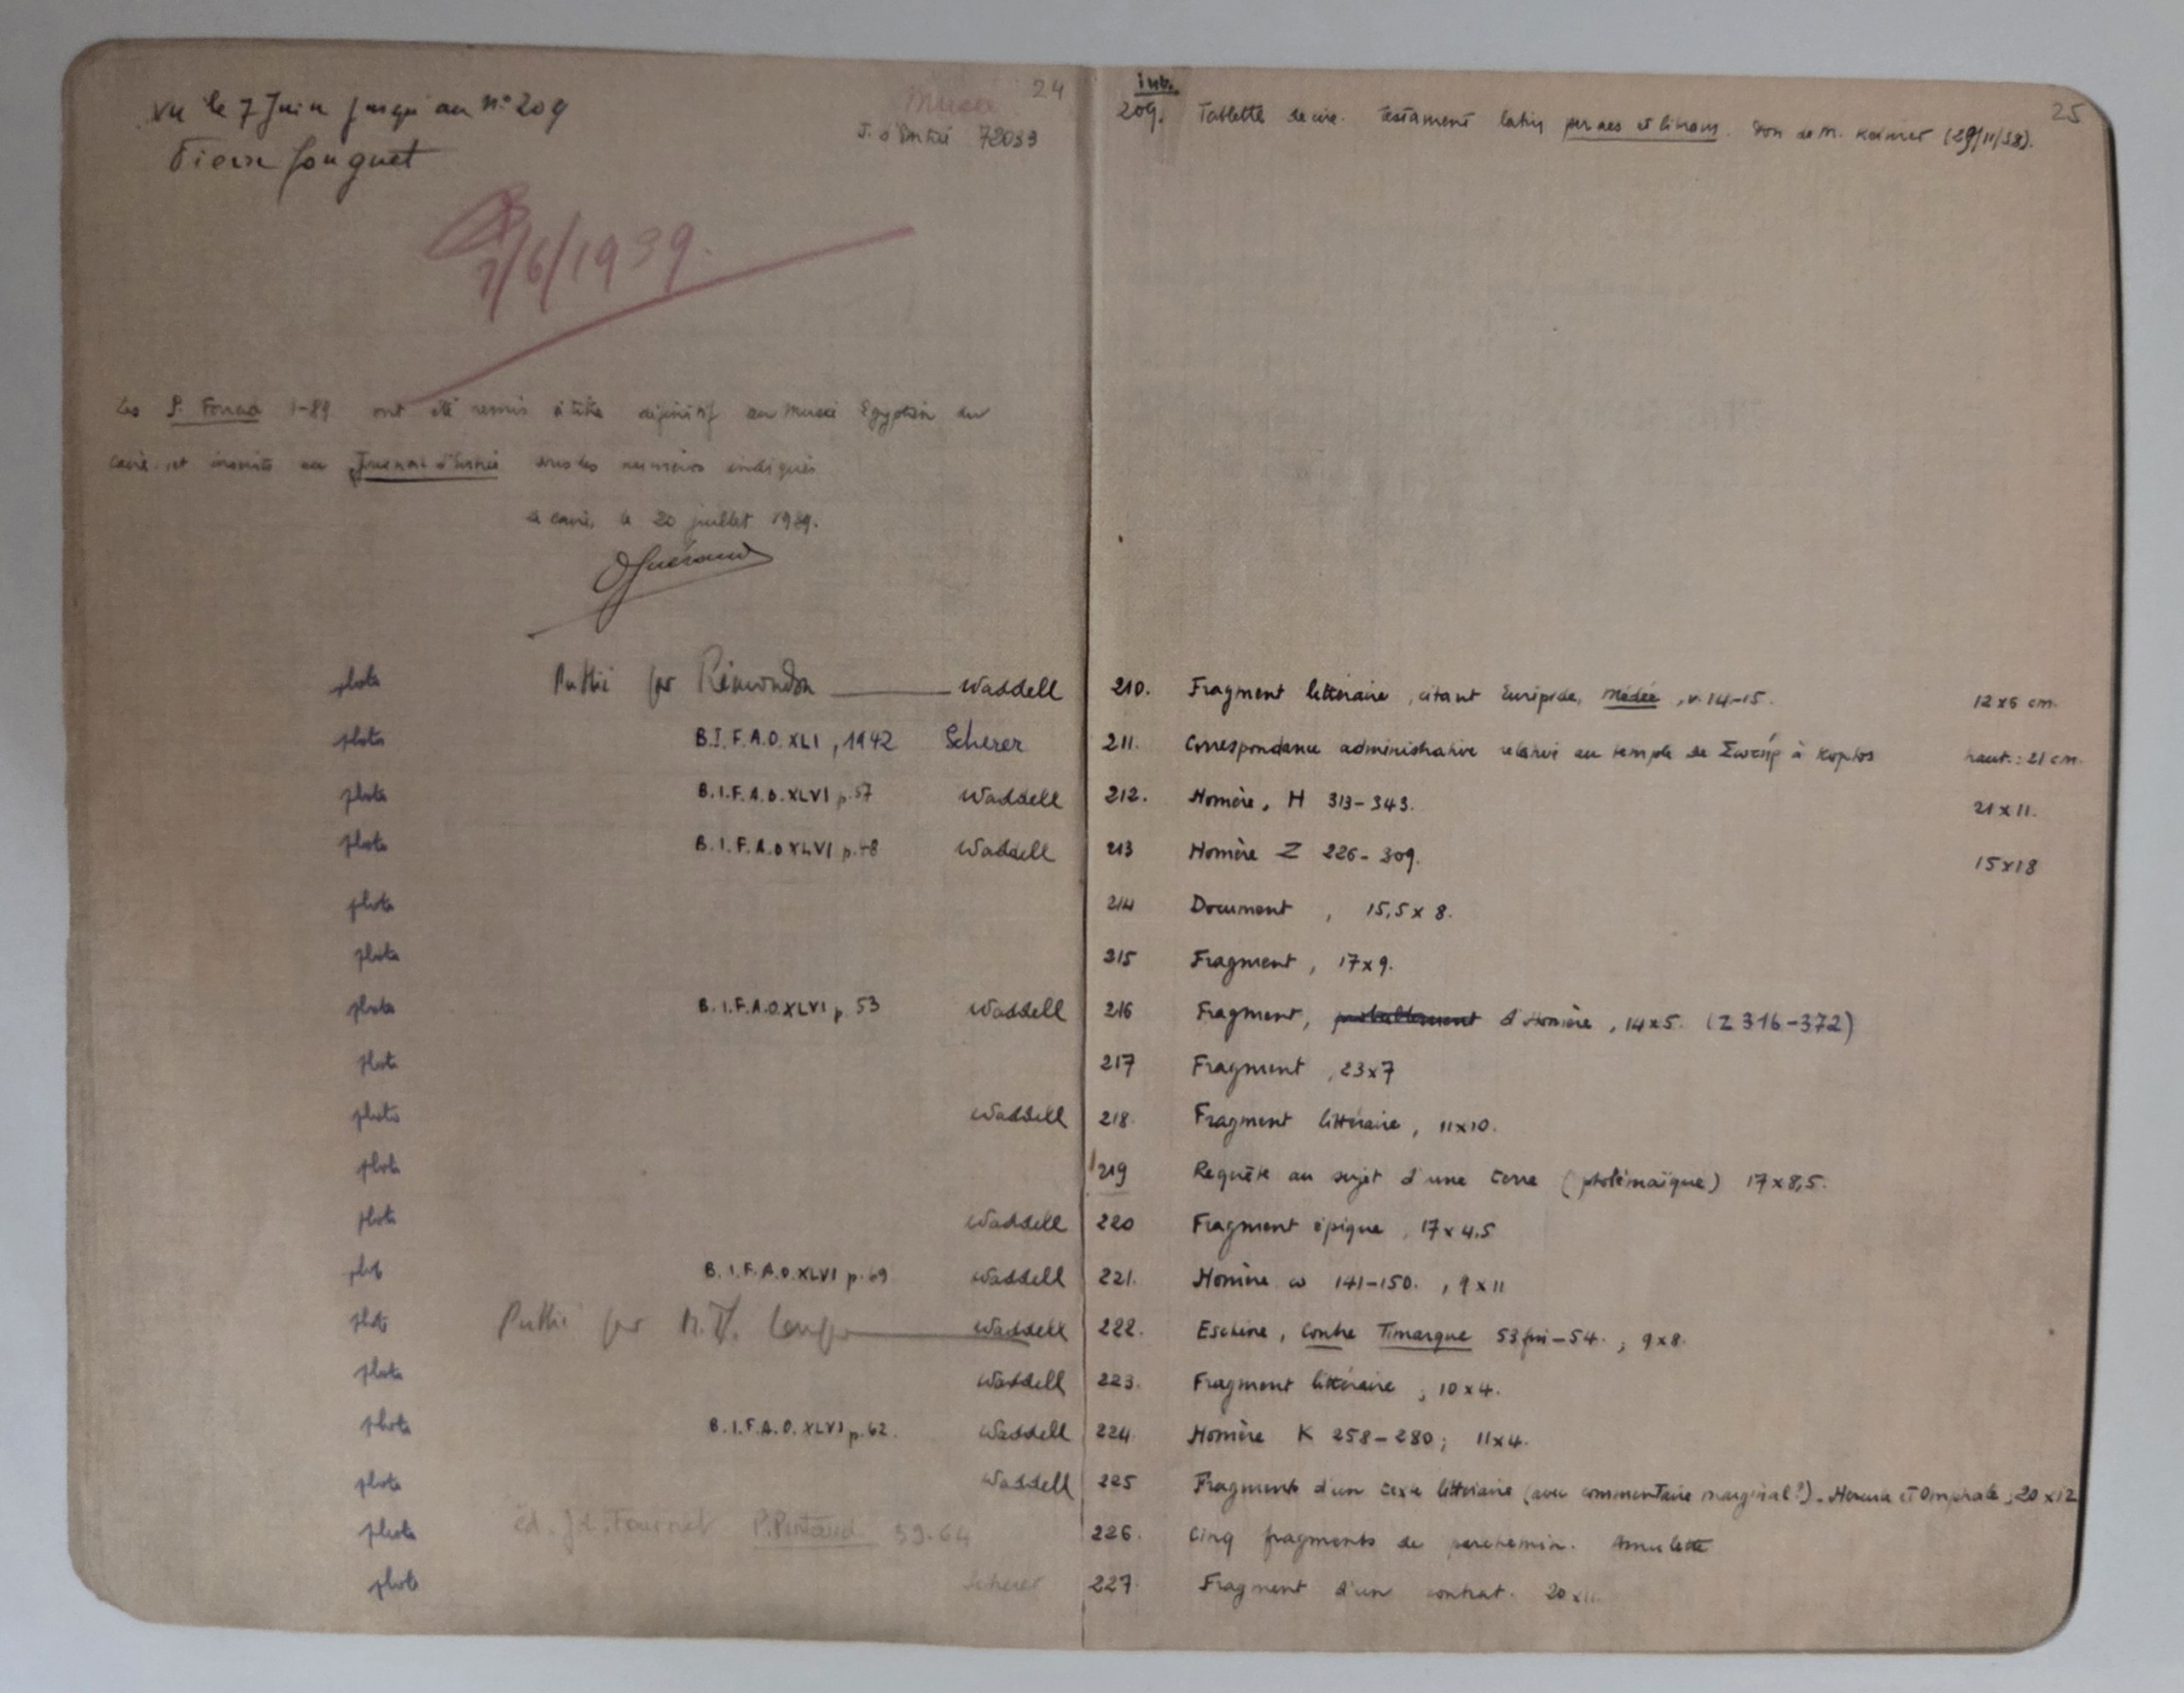 24
Musée
J. d'Entrée 72033
vu le 7 Juin jusqu'au n° 209
Pierre Jouguet
7/6/1939.
Les P. Fouad 1-89 ont été remis à titre définitif au Musée Egyptien du
Caire et inscrits au Journal d'Entrée sous les numéros indiqués
Le Caire, le 20 juillet 1939.
O Guéraud
photo Publié par Rémondon Waddell
photo B.I.F.A.O. XLI, 1942 Scherer
photo B.I.F.A.O. XLVI p. 57 Waddell
photo B.I.F.A.O XLVI p. 48 Waddell
photo
photo
photo B.I.F.A.O. XLVI p. 53 Waddell
photo
photo Waddell
photo
photo Waddell
photo B.I.F.A.O. XLVI p. 69 Waddell
photo Publié par Waddell
photo Waddell
photo B.I.F.A.O. XLVI p. 62. Waddell
photo Waddell
photo éd. J.L. Fournet 59-64
photo Scherer
25
inv.
209. Tablette de cire. Testament latin per aes et libram. Don de M. Keimer (29/11/38).
210. Fragment littéraire, citant Euripide, Médée, v. 14-15. 12 x 6 cm.
211. Correspondance administrative relative au temple de Σωτήρ à Koptos haut.: 21 cm.
212. Homère, H 313-343. 21 x 11.
213 Homère Z 226-309. 15 x 18
214 Document, 15,5 x 8.
215 Fragment, 17 x 9.
216 Fragment, probablement d'Homère, 14 x 5. (Z 316-372)
217 Fragment, 23 x 7
218. Fragment littéraire, 11 x 10.
219 Requête au sujet d'une terre (ptolémaïque) 17 x 8,5.
220 Fragment épique, 17 x 4,5
221. Homère ω 141-150., 9 x 11
222. Eschine, Contre Timarque 53 fin-54.; 9 x 8.
223. Fragment littéraire; 10 x 4.
224. Homère K 258-280; 11 x 4.
225 Fragments d'un texte littéraire (avec commentaire marginal?). Hercule et Omphale; 20 x 12
226. Cinq fragments de parchemin. Amulette
227. Fragment d'un contrat. 20 x 11.